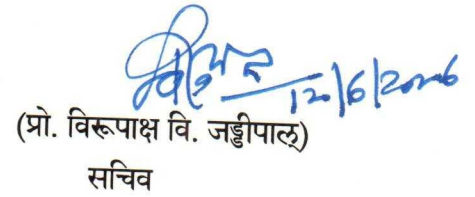 12/6/2026
(प्रो. विरूपाक्ष वि. जड्डीपाल्)
सचिव